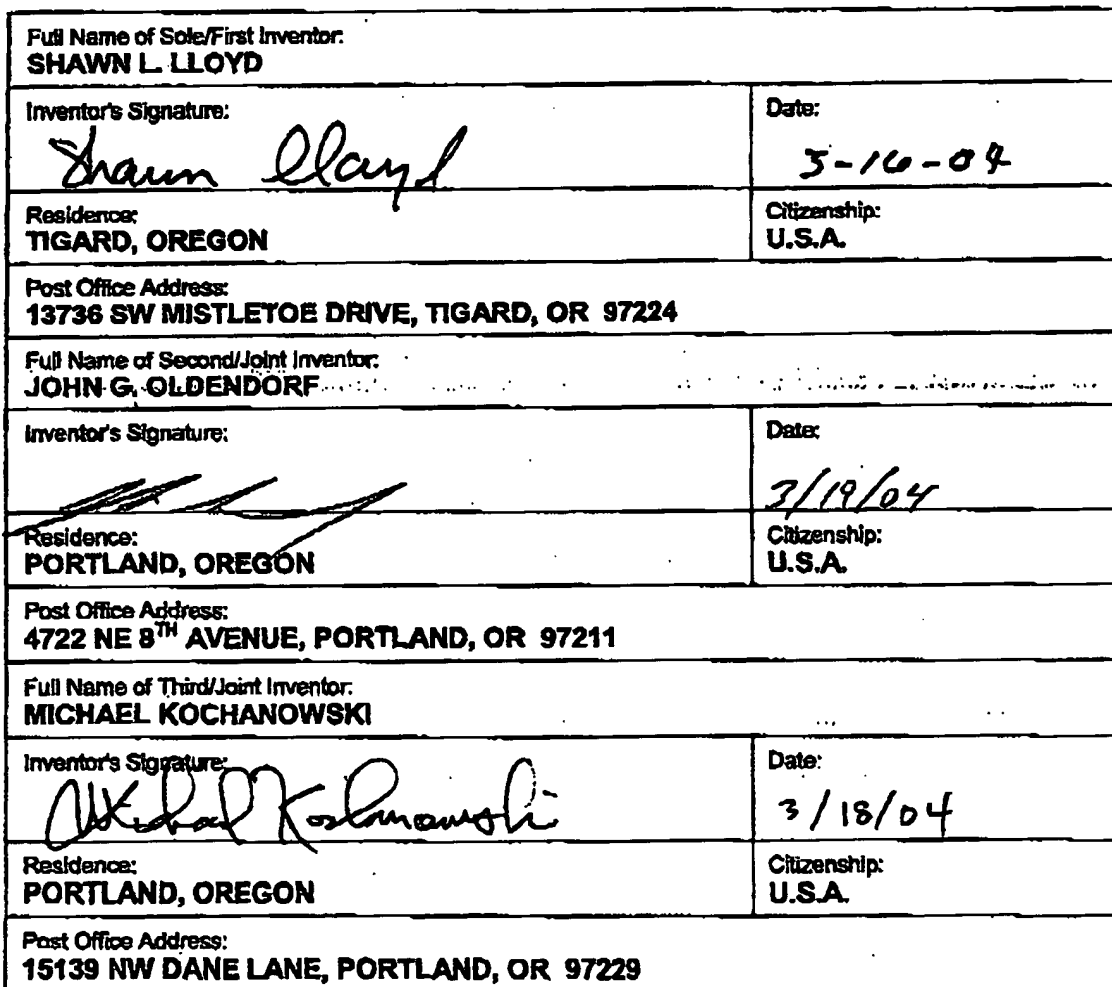 Full Name of Sole/First Inventor:
SHAWN L. LLOYD
Inventor's Signature: Date:
Shawn Lloyd 3-16-04
Residence: Citizenship:
TIGARD, OREGON U.S.A.
Post Office Address:
13736 SW MISTLETOE DRIVE, TIGARD, OR 97224
Full Name of Second/Joint Inventor:
JOHN G. OLDENDORF
Inventor's Signature: Date:
3/19/04
Residence: Citizenship:
PORTLAND, OREGON U.S.A.
Post Office Address:
4722 NE 8TH AVENUE, PORTLAND, OR 97211
Full Name of Third/Joint Inventor:
MICHAEL KOCHANOWSKI
Inventor's Signature: Date:
Michael Kochanowski 3/18/04
Residence: Citizenship:
PORTLAND, OREGON U.S.A.
Post Office Address:
15139 NW DANE LANE, PORTLAND, OR 97229